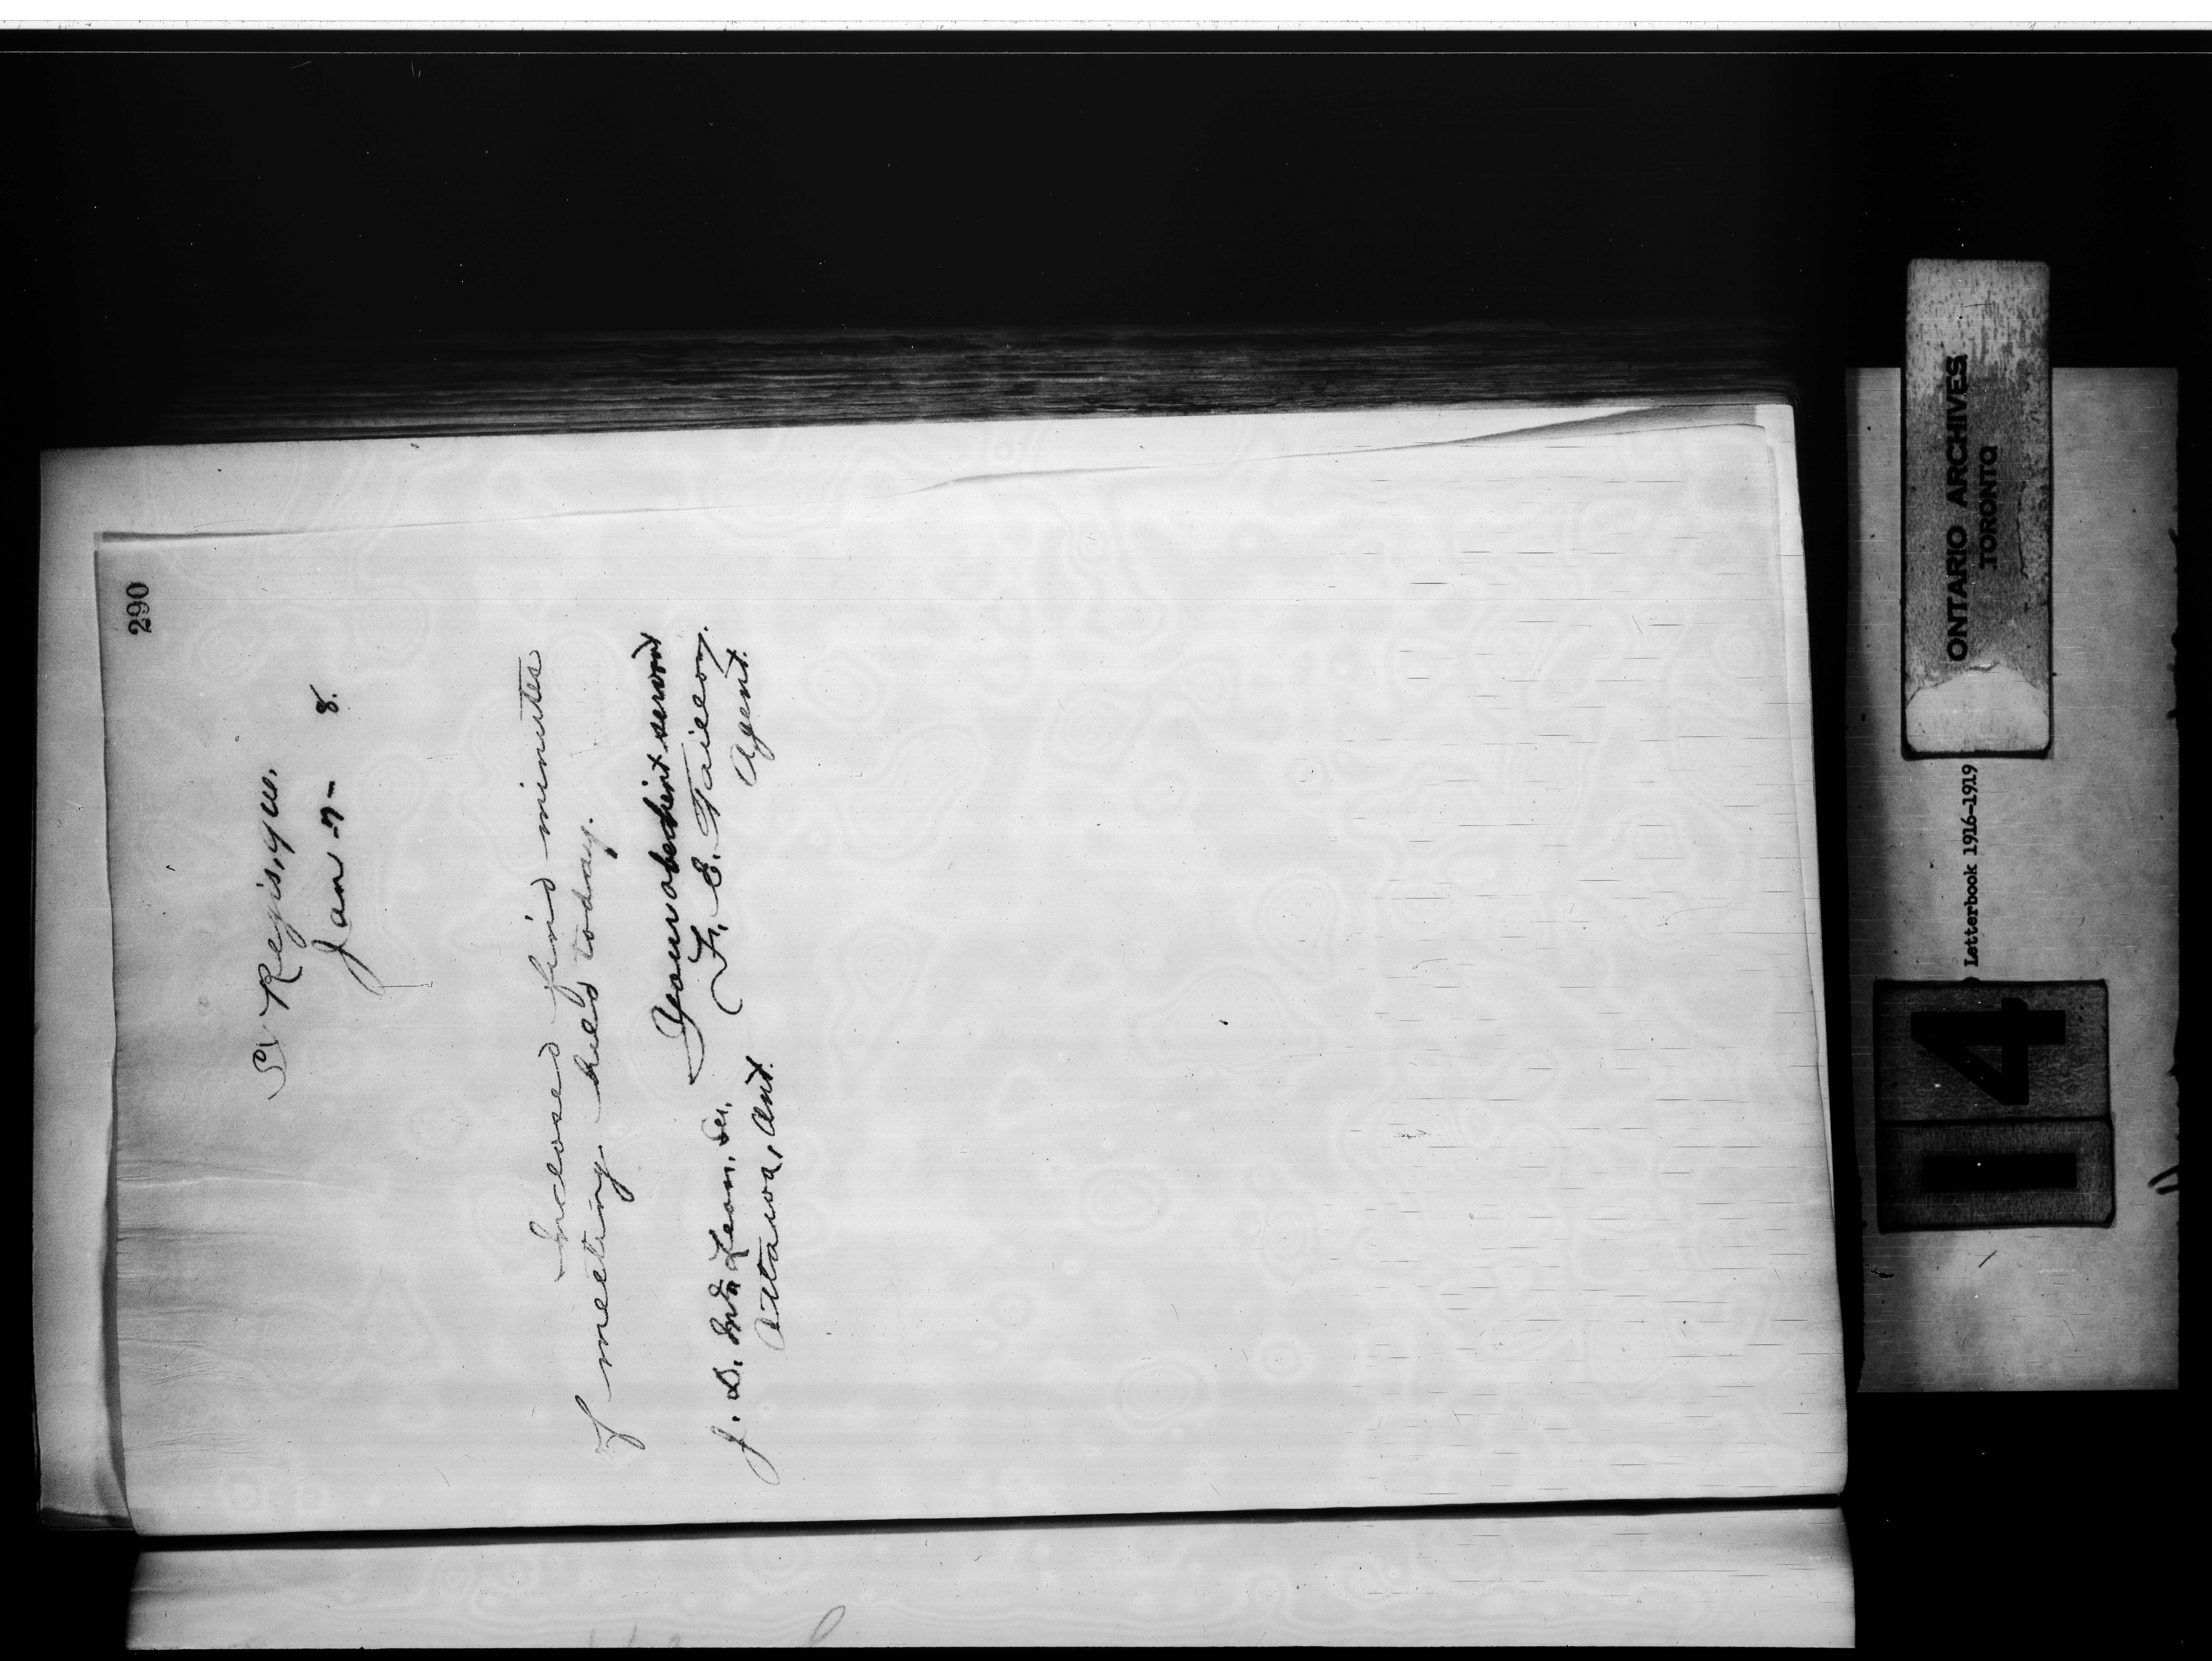 290
St Regis, Que.
Jan -7- 8.
Inclosed find minutes
of meeting held today.
Your obedient servant
J. D. McLean, Sec.
F. E. Taillon,
Ottawa, Ont.
Agent.
ONTARIO ARCHIVES
TORONTO
Letterbook 1916-1919
14